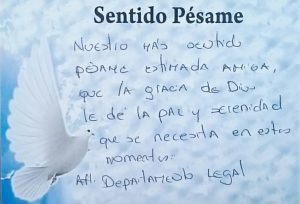 Sentido Pésame
Nuestro más sentido
pésame estimada amiga,
que la gracia de Dios
le dé la paz y serenidad
que se necesita en estos
momentos.
Att. Departamento Legal